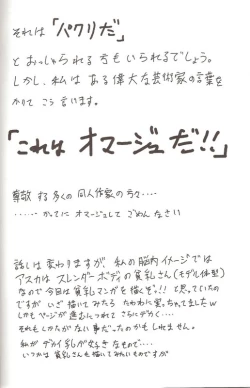 それは「パクリだ」
とおっしゃられる方もいられるでしょう。
しかし、私は ある偉大な芸術家の言葉を
かりて こう言います。
「これは オマージュだ!!」
尊敬する多くの同人作家の方々‥‥
‥‥‥かってにオマージュして ごめんなさい
話しは変わりますが、私の脳内イメージでは
アスカは スレンダーボディの貧乳さん(モデル体型)
なので今回は貧乳マンガを描くぞ!!と思っていたの
ですが いざ描いてみたら たわわに実っちゃてましたw
しかもページが進むにつれて さらにデカく‥‥
それもしかたがない事だったのかもしれません。
私が デカイ乳が好きなもので‥‥
いつかは貧乳さんも描いてみたいものですが